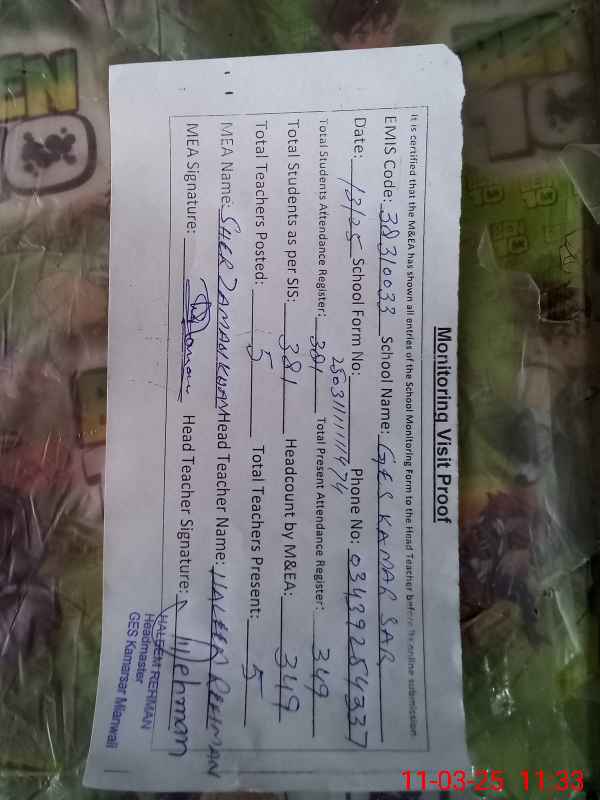 Monitoring Visit Proof
It is certified that the M&EA has shown all entries of the School Monitoring Form to the Head Teacher before its online submission
EMIS Code: 38310033 School Name: GES KAMAR SAR
Date: 1/3/25 School Form No: 25031111111474 Phone No: 03439254337
Total Students Attendance Register: 381 Total Present Attendance Register: 349
Total Students as per SIS: 381 Headcount by M&EA: 349
Total Teachers Posted: 5 Total Teachers Present: 5
MEA Name: SHER ZAMAN KHAN Head Teacher Name: HALEEM REHMAN
MEA Signature: Head Teacher Signature: Rehman
HALEEM REHMAN
Headmaster
GES Kamarsar Mianwali
11-03-25 11:33